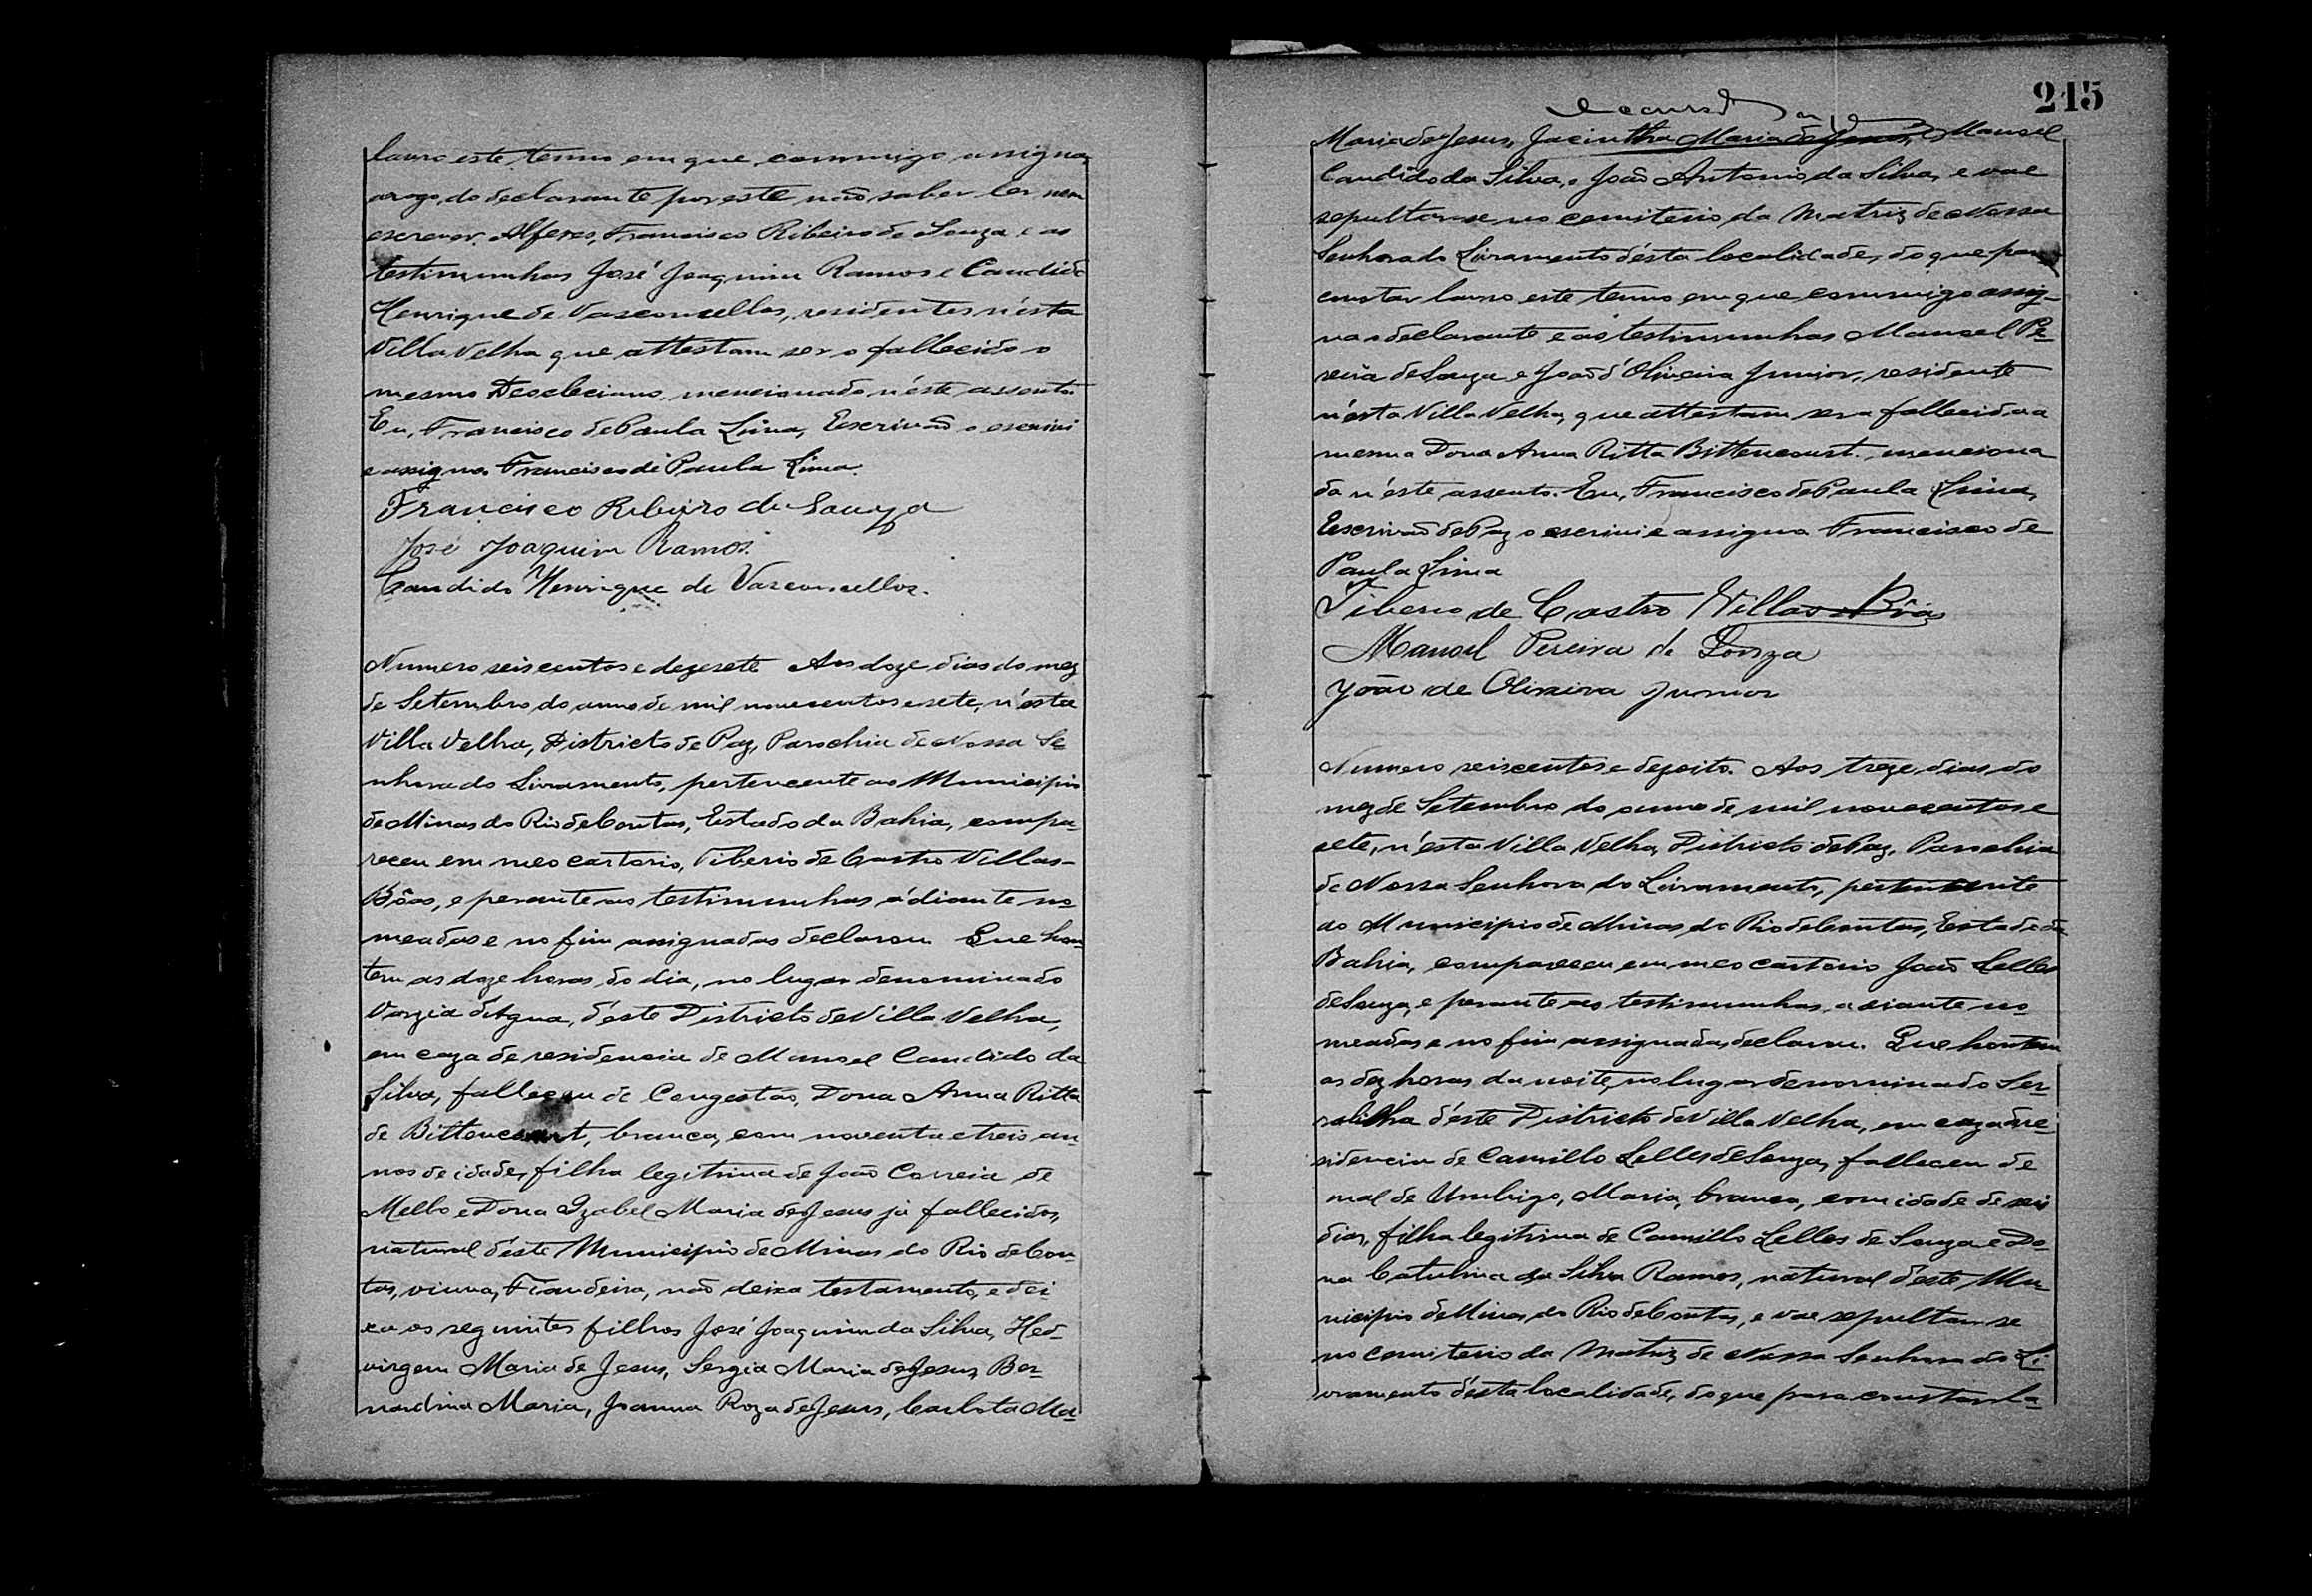 lavro este termo em que commigo assigna,
arogo do declarante por este não saber ler nem
escrever, Alferes, Francisco Ribeiro de Souza e as
testimunhas José Joaquim Ramos e Candido
Henrique de Vasconcellos, residentes n'esta
Villa Velha que attestam ser o fallecido o
mesmo Deocleciano, mencionado n'este assento.
Eu, Francisco de Paula Lima, Escrivão o escrivi
e assigno. Francisco de Paula Lima.
Francisco Ribeiro de Souza
José Joaquim Ramos.
Candido Henrique de Vasconcellos.
Numero seis centos e dezesete Aos doze dias do mez
de Setembro do anno de mil novecentos e sete, n'esta
Villa Velha, Districto de Paz, Parochia de Nossa Se-
nhora do Livramento, pertencente ao Municipio
de Minas do Rio de Contas, Estado da Bahia, compa-
receu em meo cartorio, Tiberio de Castro Villas-
Bôas, e perante as testimunhas ádiante no-
meadas e no fim assignadas declarou Que hon-
tem as doze horas do dia, no lugar denominado
Varzia d'Agua, d'éste Districto de Villa Velha,
em caza de residencia de Manoel Candido da
Silva, falleceu de Congestão, Dona Anna Ritta
de Bittencourt, branca, com noventa e treis an-
nos de idade, filha legitima de João Correia de
Mello e Dona Izabel Maria de Jesus já fallecidos,
natural d'éste Municipio de Minas do Rio de Con-
tas, viuva, Fiandeira, não deixa testamento, e dei-
xa os seguintes filhos José Joaquim da Silva, Hed-
virgem Maria de Jesus, Sergia Maria de Jesus, Ber-
nardina Maria, Joanna Roza de Jesus, Carlota Ma-
215
Maria de Jesus, Jacintha Maria de Jesus, e Manoel
Candido da Silva, e João Antonio da Silva, e vae
sepultar-se no cemiterio da Matriz de Nossa
Senhora do Livramento d'ésta localidade, do que para
constar lavro este termo em que commigo assig-
na o declarante e as testimunhas Manoel Pe-
reira de Souza e João d'Oliveira Junior, residente
n'esta Villa Velha, que attestam ser a fallecida a
mesma Dona Anna Ritta Bittencourt, menciona
da n'éste assento. Eu, Francisco de Paula Lima,
Escrivão de Paz o escrivi e assigno Francisco de
Paula Lima
Tiberio de Castro Villas Bôas
Manoel Pereira de Souza
João de Oliveira Junior
Numero seiscentos e dezoito. Aos treze dias do
mez de Setembro do anno de mil novecentos e
sete, n'ésta Villa Velha, Districto de Paz, Parochia
de Nossa Senhora do Livramento, pertencente
ao Municipio de Minas do Rio de Contas, Estado da
Bahia, compareceu em meo cartorio João Lelles
de Souza, e perante as testimunhas, adiante no-
meadas e no fim assignadas, declarou. Que hontem
as dez horas da noite, no lugar denominado Ser-
ralilha d'éste Districto de Villa Velha, em caza de re-
sidencia de Camillo Lelles de Souza, falleceu de
mal de Umbigo, Maria, branca, com idade de seis
dias, filha legitima de Camillo Lelles de Souza e Do-
na Catulina da Silva Ramos, natural d'éste Mu-
nicipio de Minas do Rio de Contas, e vae sepultar-se
no cemiterio da Matriz de Nossa Senhora do Li-
vramento d'ésta localidade, do que para constar la-